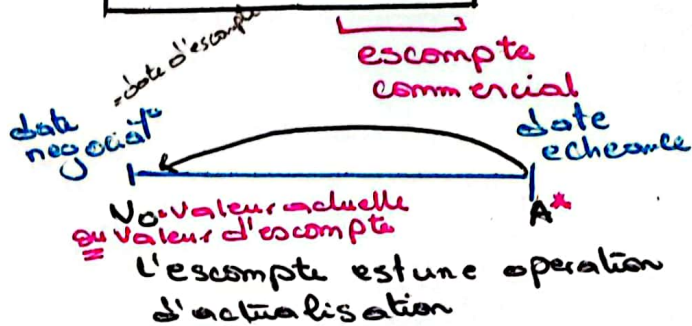 = date d'escompte
escompte
commercial
date
negociat°
date
echeance
Vo = valeur actuelle
ou valeur d'escompte
A*
l'escompte est une operation
d'actualisation